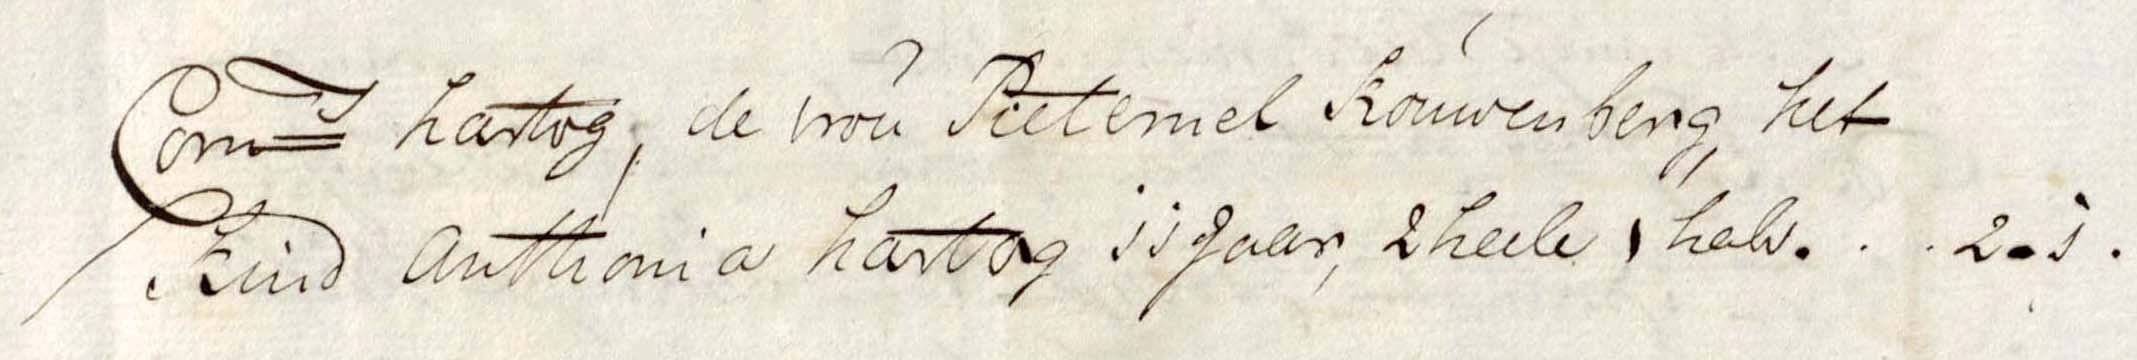 Corn=s hartog, de vroú Pieternel Koúwenberg, het
Kind Anthonia hartog 11 Jaar, 2 heele 1 halv. . . 2.1.